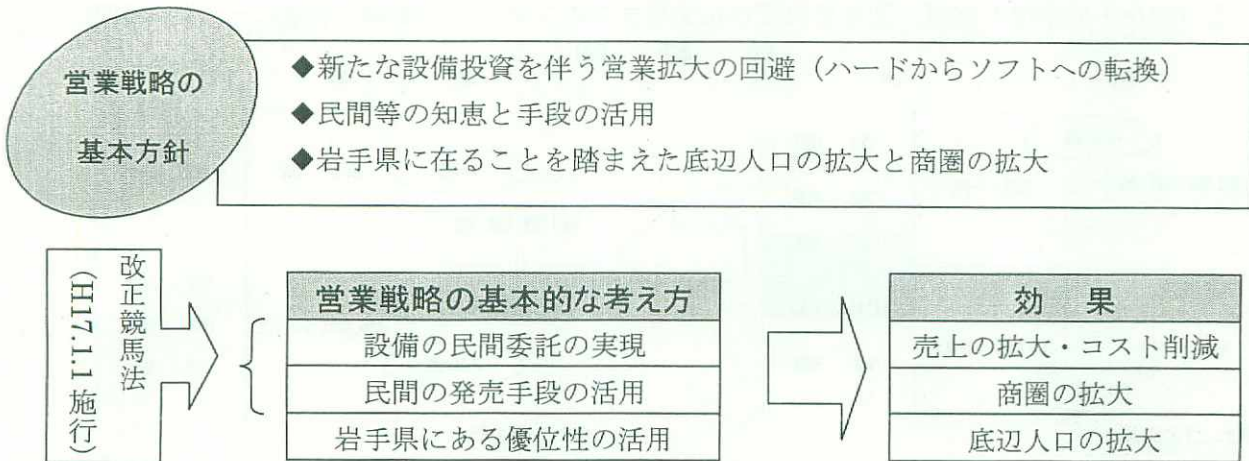 営業戦略の
基本方針
◆新たな設備投資を伴う営業拡大の回避（ハードからソフトへの転換）
◆民間等の知恵と手段の活用
◆岩手県に在ることを踏まえた底辺人口の拡大と商圏の拡大
改正競馬法
（H17.1.1 施行）
営業戦略の基本的な考え方
設備の民間委託の実現
民間の発売手段の活用
岩手県にある優位性の活用
効　果
売上の拡大・コスト削減
商圏の拡大
底辺人口の拡大